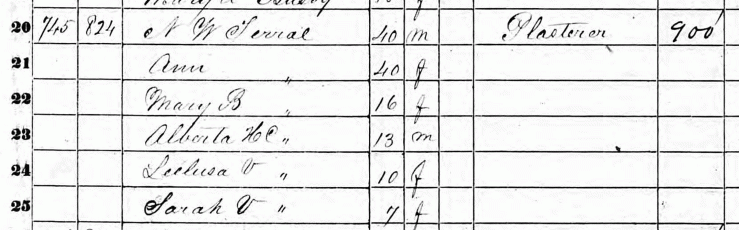 20 745 824 N W Terral 40 m Plasterer 900
21 Ann " 40 f
22 Mary B " 16 f
23 Alberta H C " 13 m
24 V " 10 f
25 Sarah V " 7 f